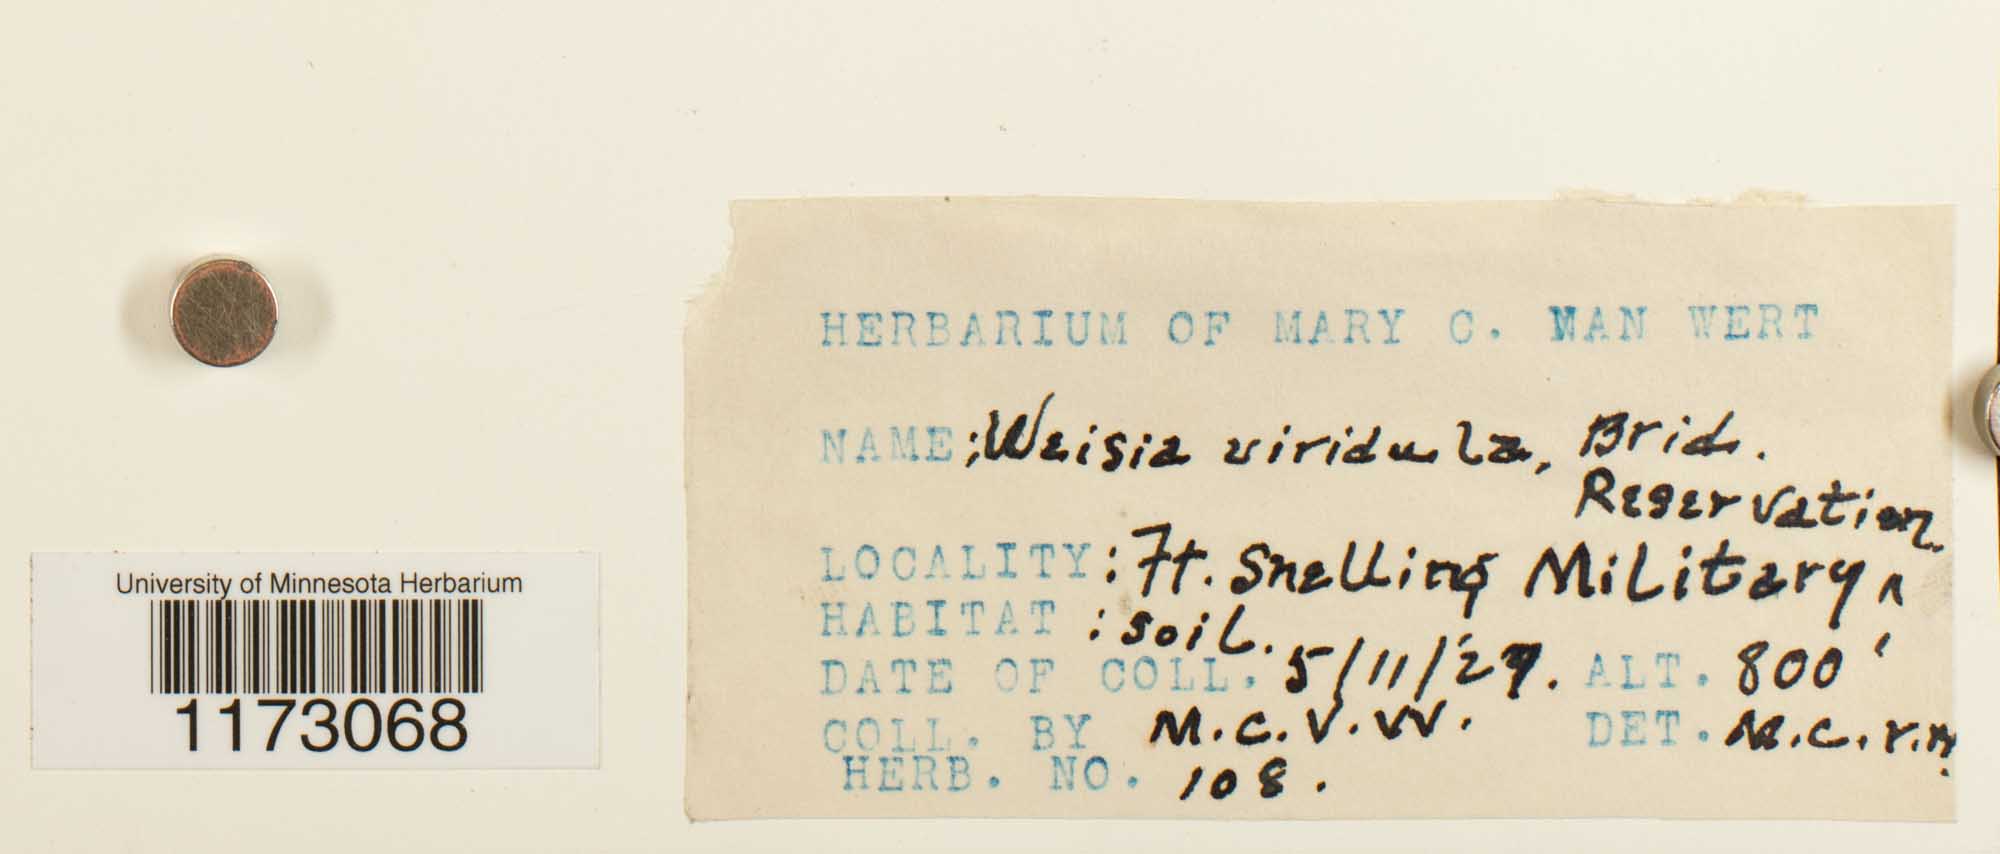 HERBARIUM OF MARY C. VAN WERT
NAME: Weisia viridula, Brid.
Reservation.
LOCALITY: Ft. Snelling Military ^
HABITAT : soil.
DATE OF COLL. 5/11/'27. ALT. 800'
COLL. BY M.C.V.W. DET. M.C.V.W.
HERB. NO. 108.
University of Minnesota Herbarium
1173068